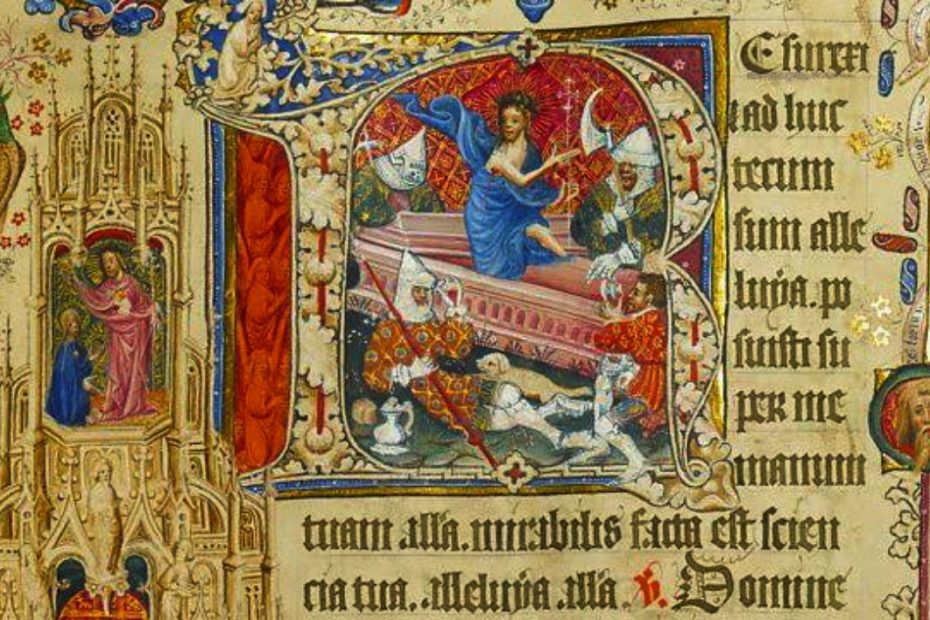 REsurexi
t ad huc
tecum
sum alle
luya. po
suisti su
per me
manum
tuam alla. mirabilis facta est scien
cia tua. alleluya .alla. Domine